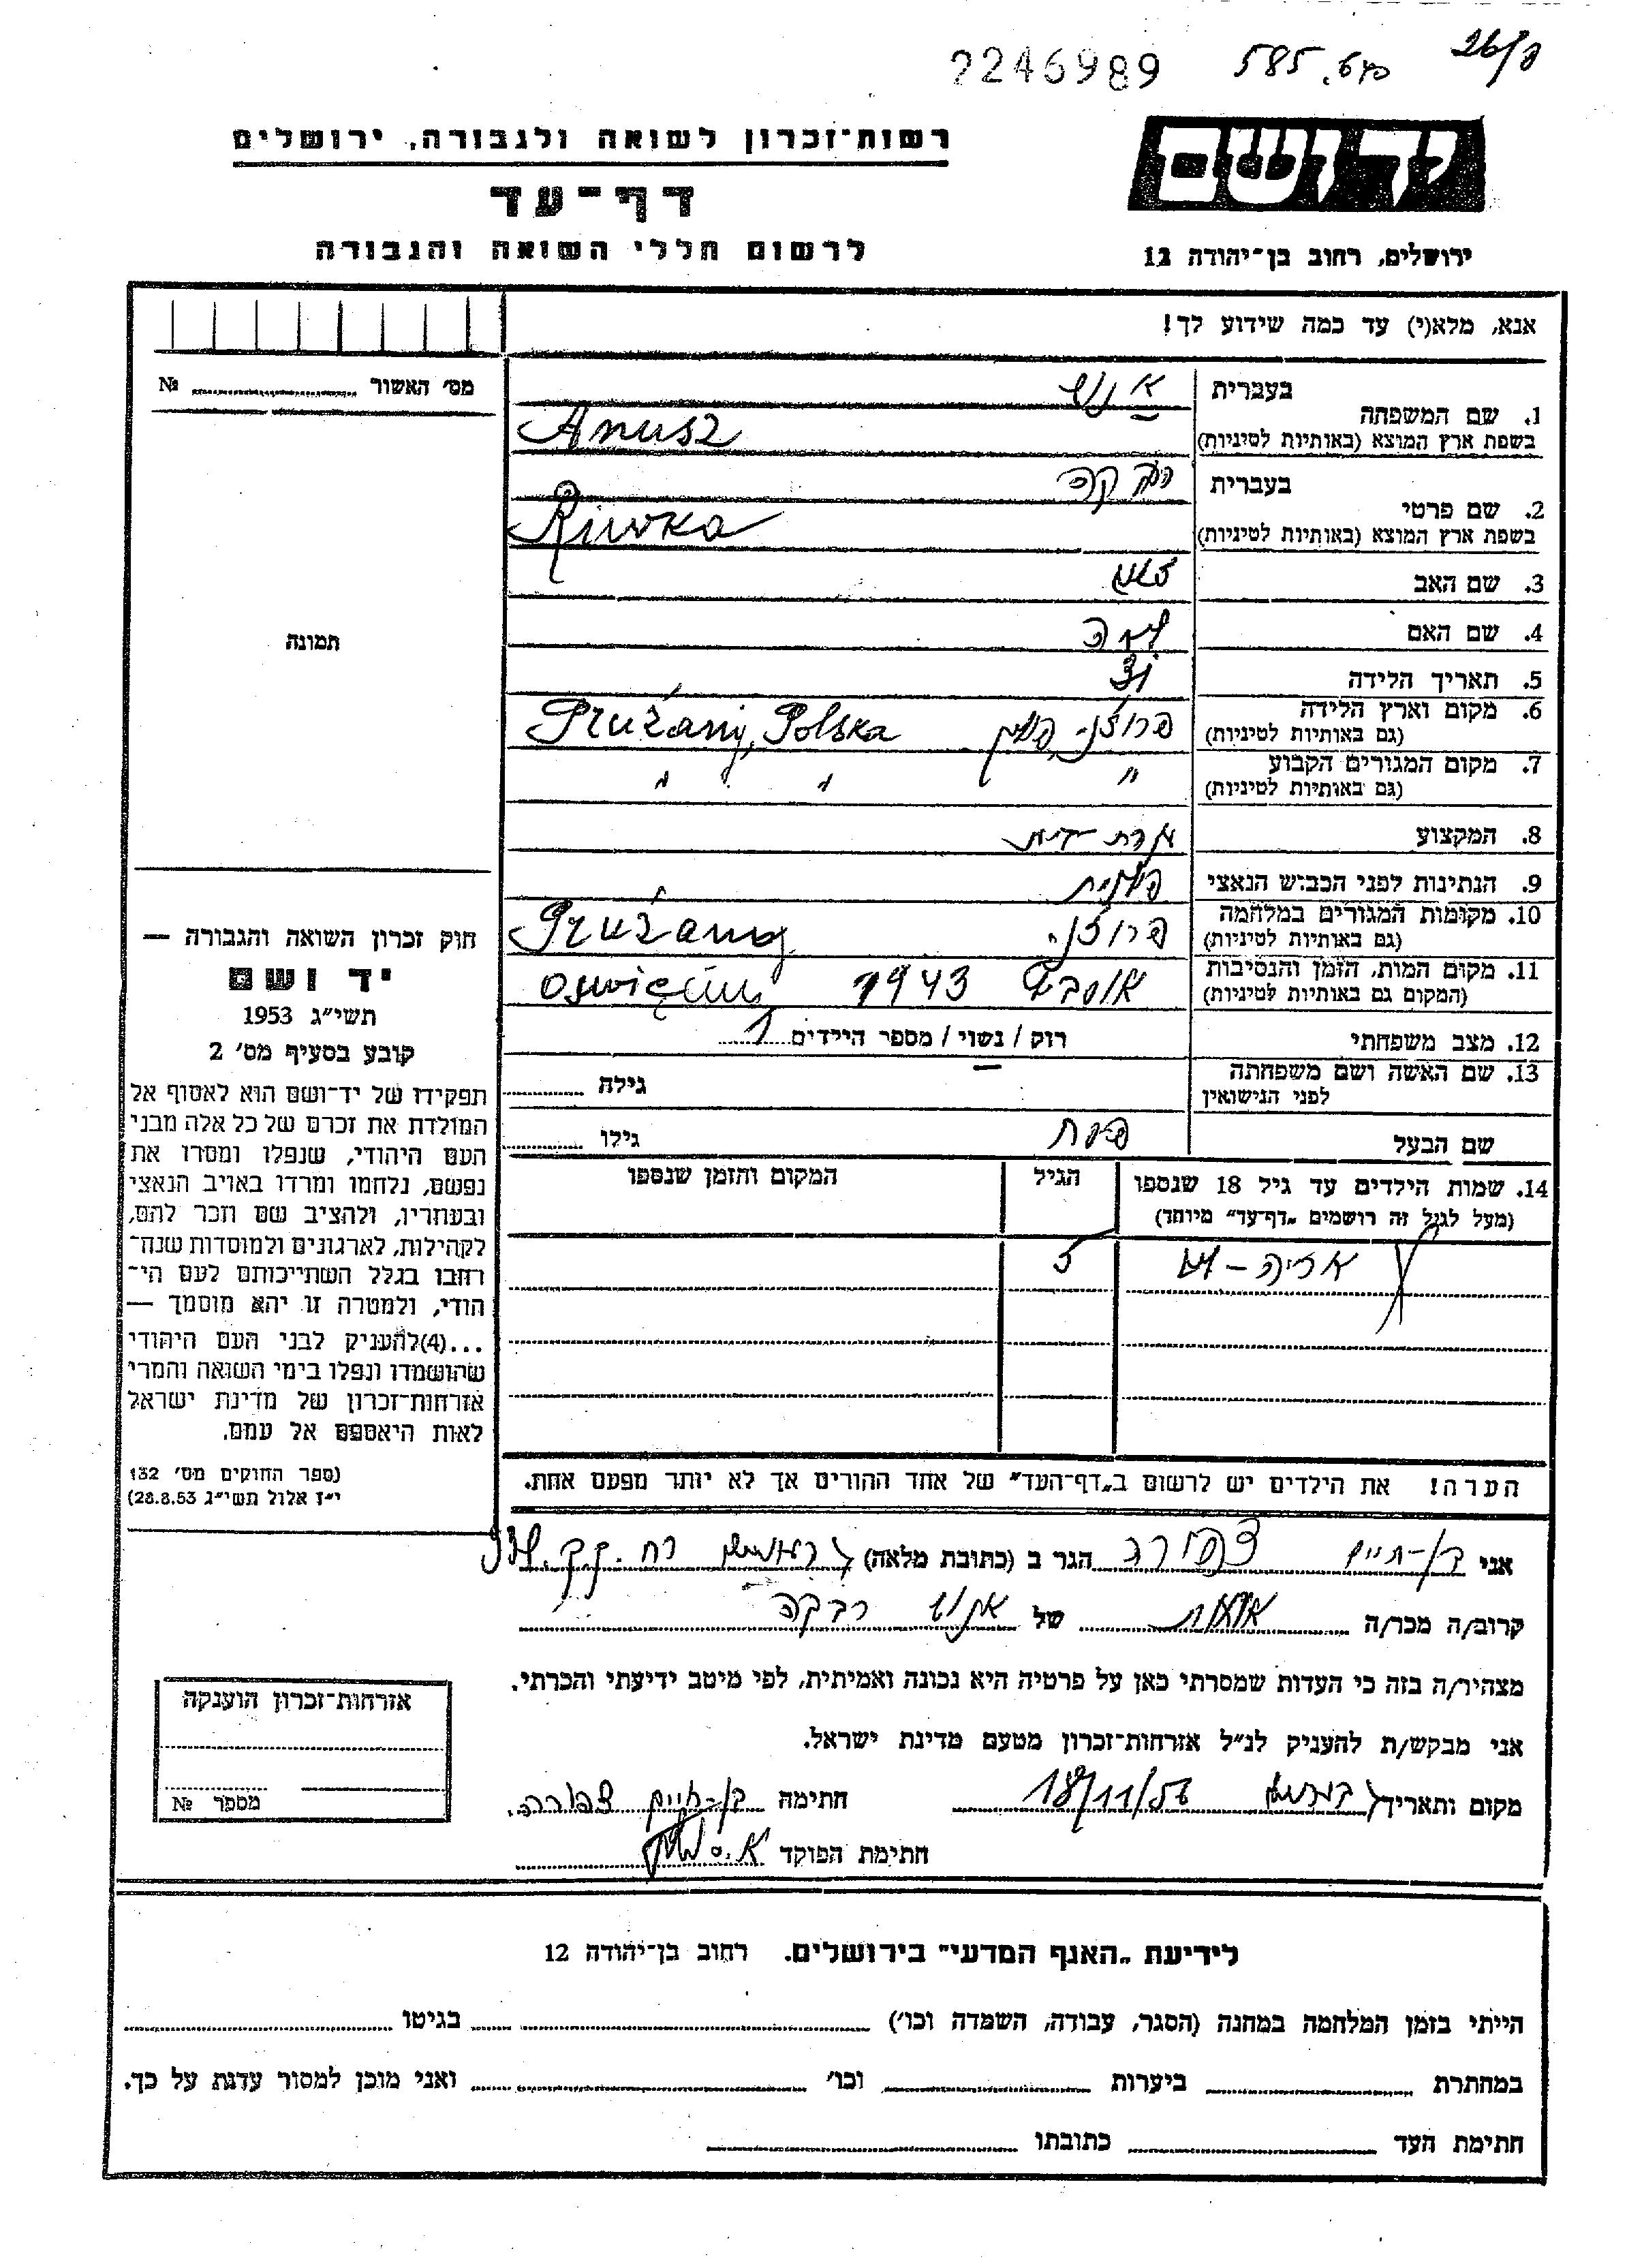 26/פ
585.פאט
2246989
יד ושם
רשות־זכרון לשואה ולגבורה, ירושלים
דף־עד
לרשום חללי השואה והגבורה
ירושלים, רחוב בן־יהודה 12
אנא, מלא(י) עד כמה שידוע לך!
מס׳ האשור № 
בעברית אנוש
1. שם המשפחה
בשפת ארץ המוצא (באותיות לטיניות) Anusz
בעברית רבקה
2. שם פרטי
בשפת ארץ המוצא (באותיות לטיניות) Riwka
3. שם האב
4. שם האם לאה
5. תאריך הלידה
6. מקום וארץ הלידה פרוז׳ני, פולין Prużany, Polska
(גם באותיות לטיניות)
7. מקום המגורים הקבוע " " "
(גם באותיות לטיניות)
8. המקצוע עקרת בית
9. הנתינות לפני הכבוש הנאצי פולנית
10. מקומות המגורים במלחמה פרוז׳ני Prużany
(גם באותיות לטיניות)
11. מקום המות, הזמן והנסיבות 1943 Oswięcim
(המקום גם באותיות לטיניות)
12. מצב משפחתי רוק / נשוי / מספר הילדים 1
13. שם האשה ושם משפחתה גילה
לפני הנישואין
שם הבעל גילו
14. שמות הילדים עד גיל 18 שנספו הגיל המקום והזמן שנספו
(מעל לגיל זה רושמים „דף־עד" מיוחד)
אריה 5
הערה! את הילדים יש לרשום ב„דף־העד" של אחד ההורים אך לא יותר מפעם אחת.
תמונה
חוק זכרון השואה והגבורה —
יד ושם
תשי״ג 1953
קובע בסעיף מס׳ 2
תפקידו של יד־ושם הוא לאסוף אל
המולדת את זכרם של כל אלה מבני
העם היהודי, שנפלו ומסרו את
נפשם, נלחמו ומרדו באויב הנאצי
ובעוזריו, ולהציב שם וזכר להם,
לקהילות, לארגונים ולמוסדות שנח־
רבו בגלל השתייכותם לעם הי־
הודי, ולמטרה זו יהא מוסמך —
...(4)להעניק לבני העם היהודי
שהושמדו ונפלו בימי השואה והמרי
אזרחות־זכרון של מדינת ישראל
לאות היאספם אל עמם.
(ספר החוקים מס׳ 132
י״ז אלול תשי״ג 28.8.53)
אני בן-חיים צפורה הגר ב (כתובת מלאה) רח. ק.ק.ל
קרוב/ה מכר/ה של אנוש רבקה
מצהיר/ה בזה כי העדות שמסרתי כאן על פרטיה היא נכונה ואמיתית, לפי מיטב ידיעתי והכרתי.
אני מבקש/ת להעניק לנ״ל אזרחות־זכרון מטעם מדינת ישראל.
מקום ותאריך 18/11/56 חתימה בן-חיים צפורה
חתימת הפוקד
אזרחות־זכרון הוענקה
מספר №
לידיעת „האגף המדעי" בירושלים. רחוב בן־יהודה 12
הייתי בזמן המלחמה במחנה (הסגר, עבודה, השמדה וכו׳) בגיטו
במחתרת ביערות וכו׳ ואני מוכן למסור עדות על כך.
חתימת העד כתובתו